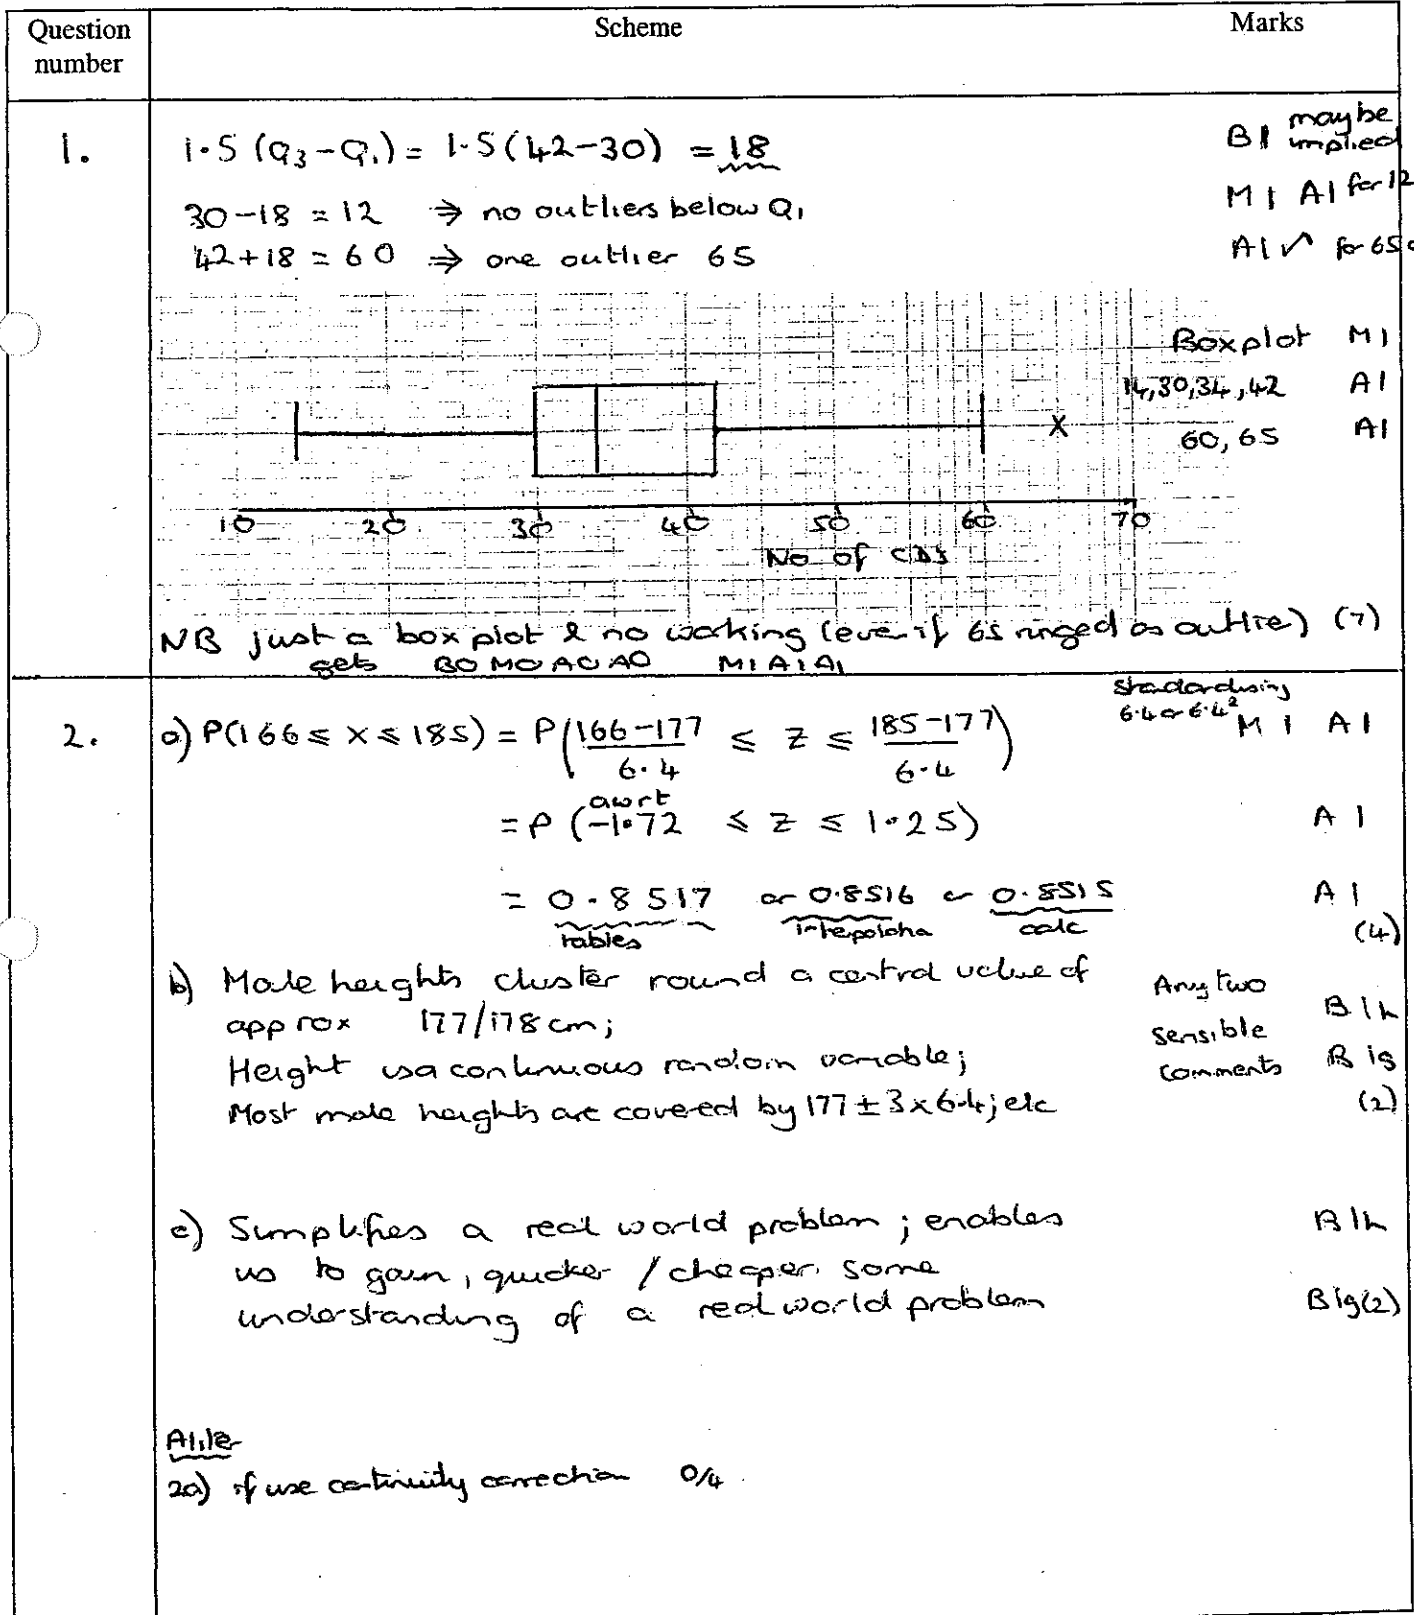 Question number Scheme Marks
1. 1.5 (Q3-Q1) = 1.5(42-30) = 18 B1 maybe implied
30-18 = 12 ⇒ no outliers below Q1 M1 A1 for 12
42+18 = 60 ⇒ one outlier 65 A1 √ for 65
Boxplot M1
14,30,34,42 A1
X 60, 65 A1
10 20 30 40 50 60 70
No of CDs
NB just a box plot & no working (even if 65 ringed as outlier) (7)
gets B0 M0 A0 A0 M1 A1 A1
2. a) P(166 ≤ X ≤ 185) = P(166-177/6.4 ≤ Z ≤ 185-177/6.4) standardising 6.4 or 6.4² M1 A1
= P (awrt -1.72 ≤ Z ≤ 1.25) A1
= 0.8517 or 0.8516 or 0.8515 A1
tables calc (4)
b) Male heights cluster round a central value of Any two
approx 177/178 cm; sensible B1h
Height is a continuous random variable; comments B1g
Most male heights are covered by 177 ± 3 x 6.4; etc (2)
c) Simplifies a real world problem; enables B1h
us to gain, quicker / cheaper some
understanding of a real world problem B1g(2)
2a) if use continuity correction 0/4